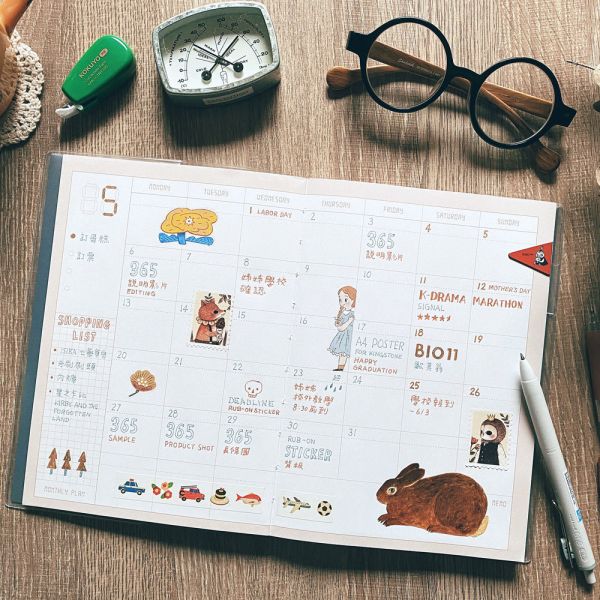 KOKUYO
05
MONDAY
TUESDAY
WEDNESDAY
THURSDAY
FRIDAY
SATURDAY
SUNDAY
訂票
SHOPPING
LIST
KIRBY AND THE
FORGOTTEN
LAND
MONTHLY PLAN
1 LABOR DAY
2
3
365
說明影片
4
5
6
365
說明影片
EDITING
7
8
姊姊學校
確認
9
10
11
K-DRAMA
SIGNAL
12 MOTHER'S DAY
MARATHON
13
14
15
16
17
A4 POSTER
FOR KINGSTONE
HAPPY
GRADUATION
18
BIO11
19
20
21
22
DEADLINE
RUB-ON STICKER
23
姊姊
校外教學
8:30 到
24
25
學校報到
-6/3
26
27
365
SAMPLE
28
365
PRODUCT SHOT
29
365
30
RUB-ON
STICKER
31
MEMO